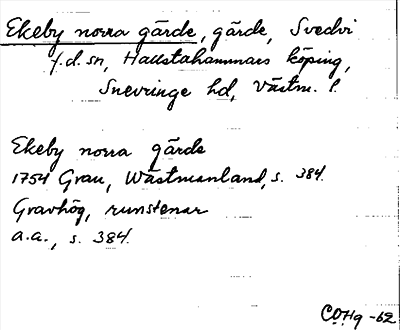 Ekeby norra gärde, gärde, Svedvi
f.d. sn, Hallstahammars köping,
Snevringe hd, Västm. l.
Ekeby norra gärde
1754 Grau, Wästmanland, s. 384.
Gravhög, runstenar
a.a., s. 384.
COHg -62